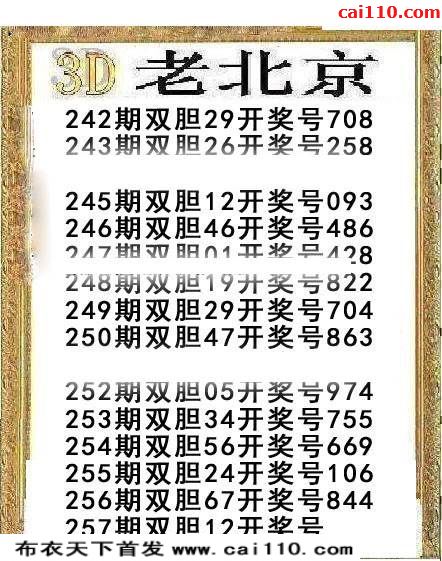 cai110.com
3D 老北京
242期双胆29开奖号708
243期双胆26开奖号258
245期双胆12开奖号093
246期双胆46开奖号486
247期双胆01开奖号428
248期双胆19开奖号822
249期双胆29开奖号704
250期双胆47开奖号863
252期双胆05开奖号974
253期双胆34开奖号755
254期双胆56开奖号669
255期双胆24开奖号106
256期双胆67开奖号844
257期双胆12开奖号
布衣天下首发 www.cai110.com